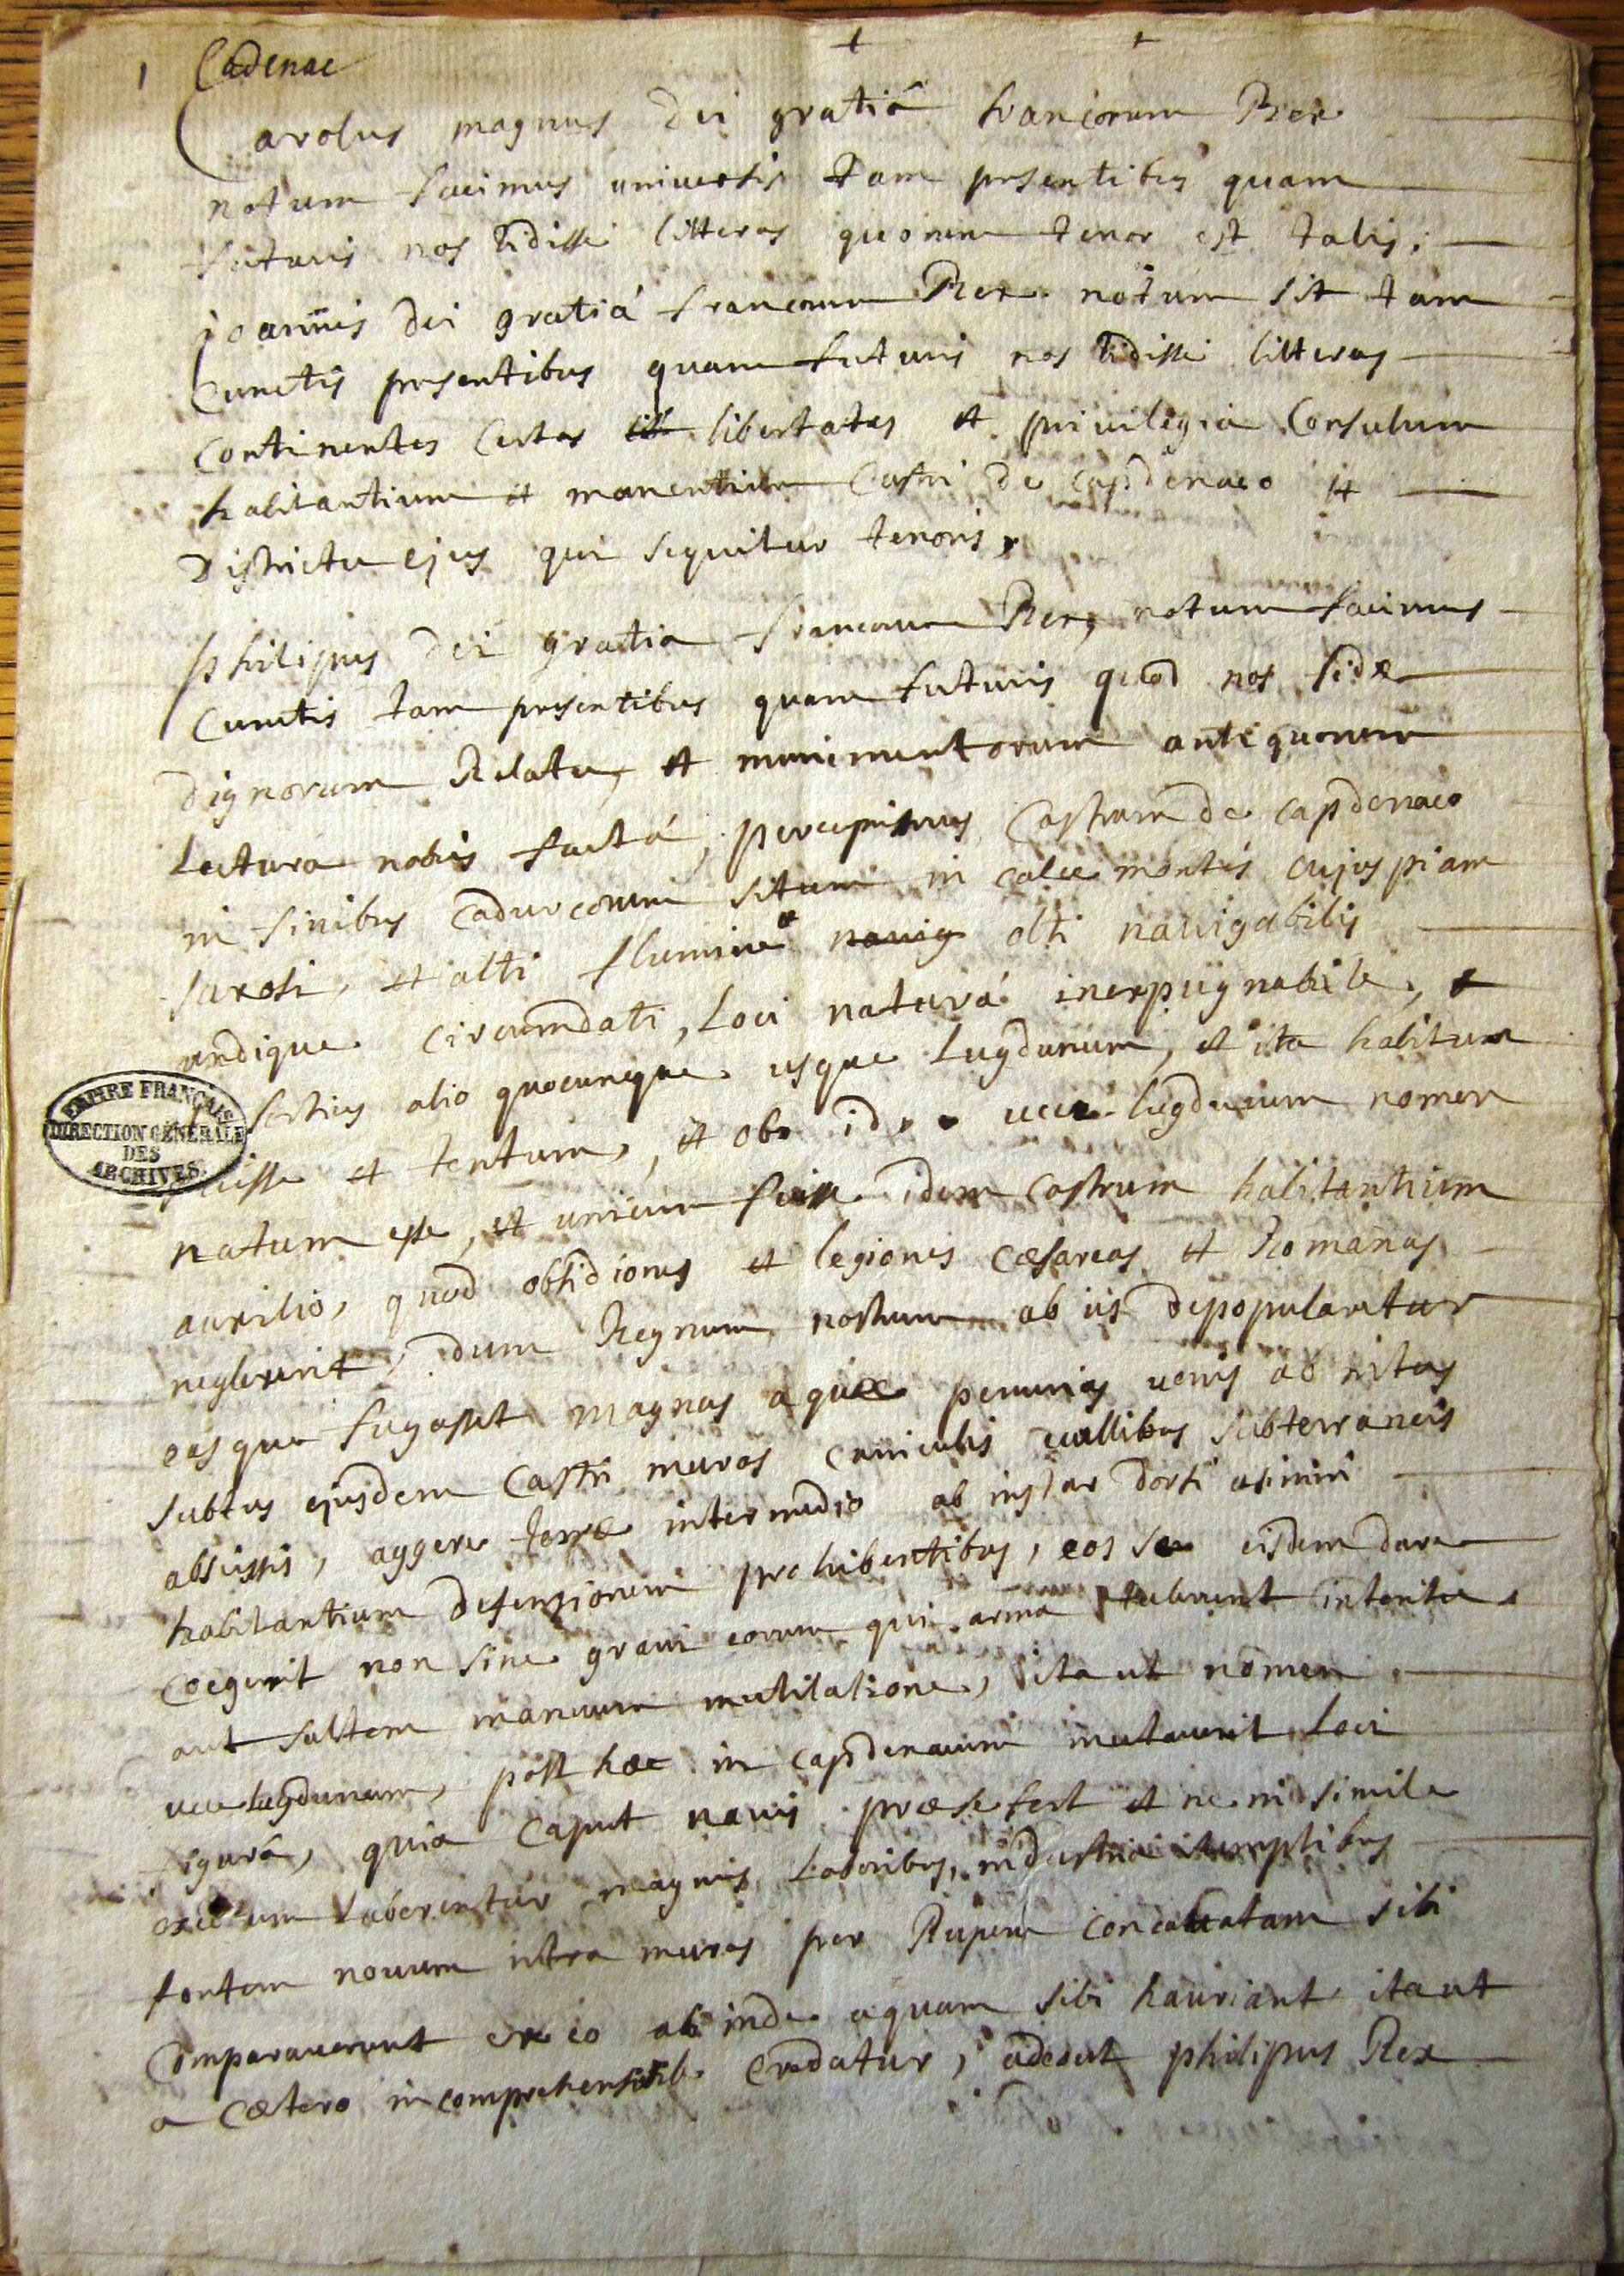 1 Cadenac
Carolus magnus dei gratiâ francorum Rex
notum facimus universis tam presentibus quam
futuris nos vidisse litteras quorum tenor est talis.
joannis dei gratiá francorum Rex notum sit tam
cunctis presentibus quam futuris nos vidisse litteras
continentes certas lib libertates et privilegia Consulum
habitantium et manentium Castri de capdenaco et
districtu ejus qui sequitur tenoris,
philipus dei gratia francorum Rex, notum facimus
cunctis tam presentibus quam futuris quod nos fidæ
dignorum Relatu, et munimentorum antiquorum
Lectura nobis factá, percepimus Castrum de capdenaco
in finibus cadurcorum situm in calce montis cujuspiam
saxosi, et alti flumine navig olti navigabilis
undique circumdati, Loci naturá inexpugnabile, et
fortius alio quocunque usque Lugdunum, et ita habitum
fuisse et tentum, et ob id uxe lugdunum nomen
natum esse, et unicum fuisse idem castrum habitantium
auxilio, quod obsidiones et legiones cæsareas et Romanas
neglexerit, dum Regnum nostrum ab iis depopularetur
easque fugasset magnas aquæ penurias venis ad nitas
subtus ejusdem Castri muros cuniculis vallibus subterraneis
abscissis, aggere terræ intermedio ab instar dorsi asinini
habitantium defensionem prohibentibus, eos se eisdem dare
coegerit non sine gravi eorum qui arma tulerunt interitu
aut saltem manuum mutilatione, ita ut nomen
uxe lugdunum, post hæc in capdenacum mutaverit Loci
figurá, quia caput navis præsefert et ne in simile
exitium laberentur magnis Laboribus, industria sumptibus
fontem novum intra muros per Rupem concavatam sibi
comparaverunt ex eo ab inde aquam sibi hauriant ita ut
a cætero incomprehensibile credatur, adeout philipus Rex
EMPIRE FRANÇAIS
DIRECTION GÉNÉRALE
DES
ARCHIVES